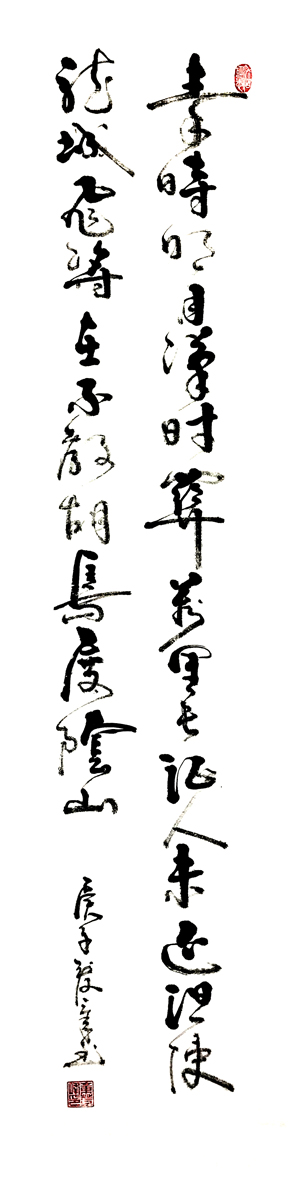 秦時明月漢时關萬里长征人未還但使
龍城飛将在不教胡馬度陰山
庚子书